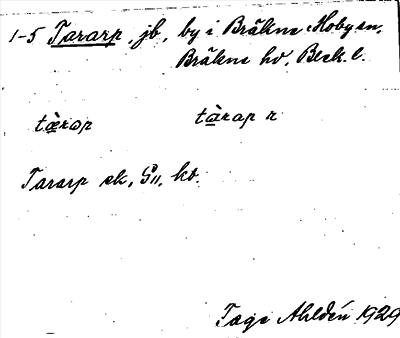 1-5 Tararp, jb, by i Bräkne Hoby sn,
Bräkne hd, Blek. l.
tæ̀rəp tàrap n
Tararp ek, G11, kt.
Tage Ahldén 1929